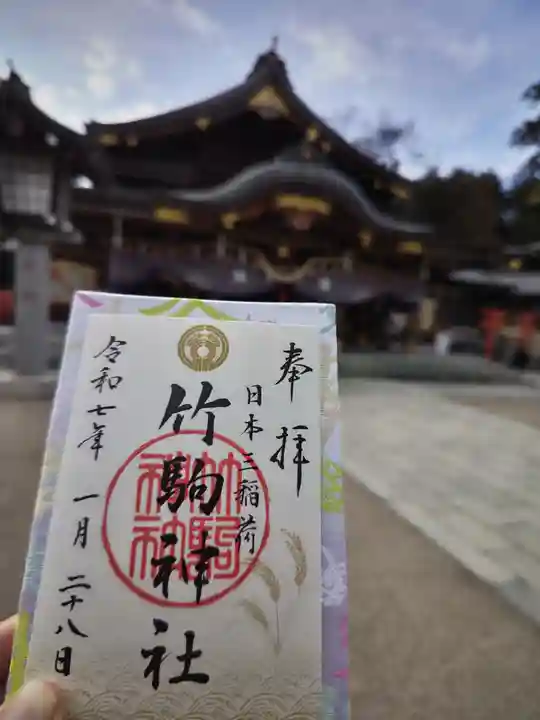 奉拝
日本三稲荷
竹駒神社
竹駒神社
令和七年 一月 二十八日